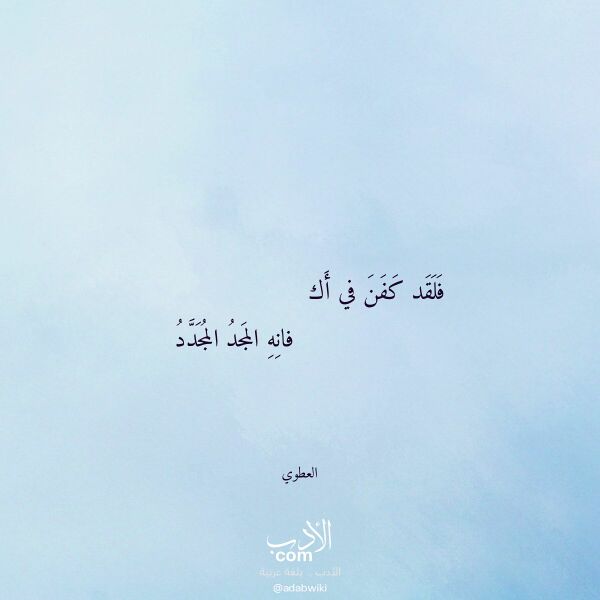 فَلَقَد كَفَنَ في أَك
فانِهِ المَجدُ المُجَدَّدُ
العطوي
الأدب
com
الأدب .. بلغة عربية
@adabwiki